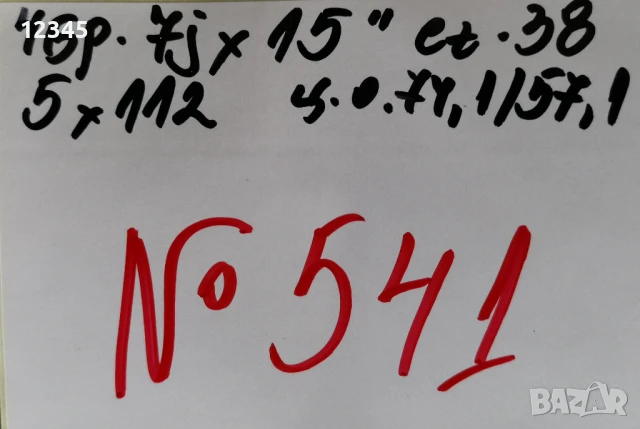 12345
4бр. 7j x 15" et. 38
5 x 112 ц.о. 74,1/57,1
№ 541
BAZAR